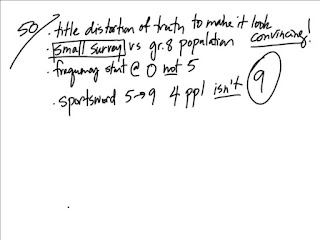 50 · title distortion of truth to make it look convincing!
· small survey vs gr.8 population
· frequency start @ 0 not 5
· sportsword 5→9 4 ppl isn't 9